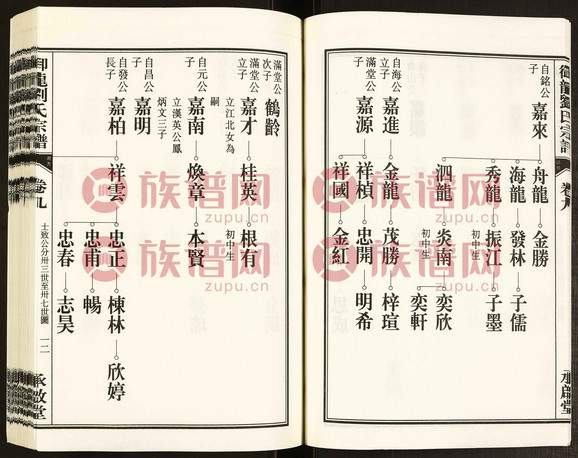 御龍劉氏宗譜
卷九
承啟堂
自銘公子
嘉來
舟龍
金勝
海龍
發林
子儒
秀龍
振江
子墨
初中生
泗龍
炎南
奕欣
奕軒
初中生
自海公立子
嘉進
金龍
茂勝
梓瑄
滿堂公子
嘉源
祥楨
忠開
明希
祥國
金紅
滿堂公次子
鶴齡
滿堂公立子
嘉才
桂英
根有
立江北女為嗣
初中生
自元公子
嘉南
煥章
本賢
立漢英公鳳炳文三子
自昌公子
嘉明
自發公長子
嘉柏
祥雲
忠正
棟林
欣婷
忠甫
暢
忠春
志昊
御龍劉氏宗譜
卷九
士致公分卅三世至卅七世圖
一二
承啟堂
族谱网
zupu.cn
族谱网
zupu.cn
族谱网
zupu.cn
族谱网
zupu.cn